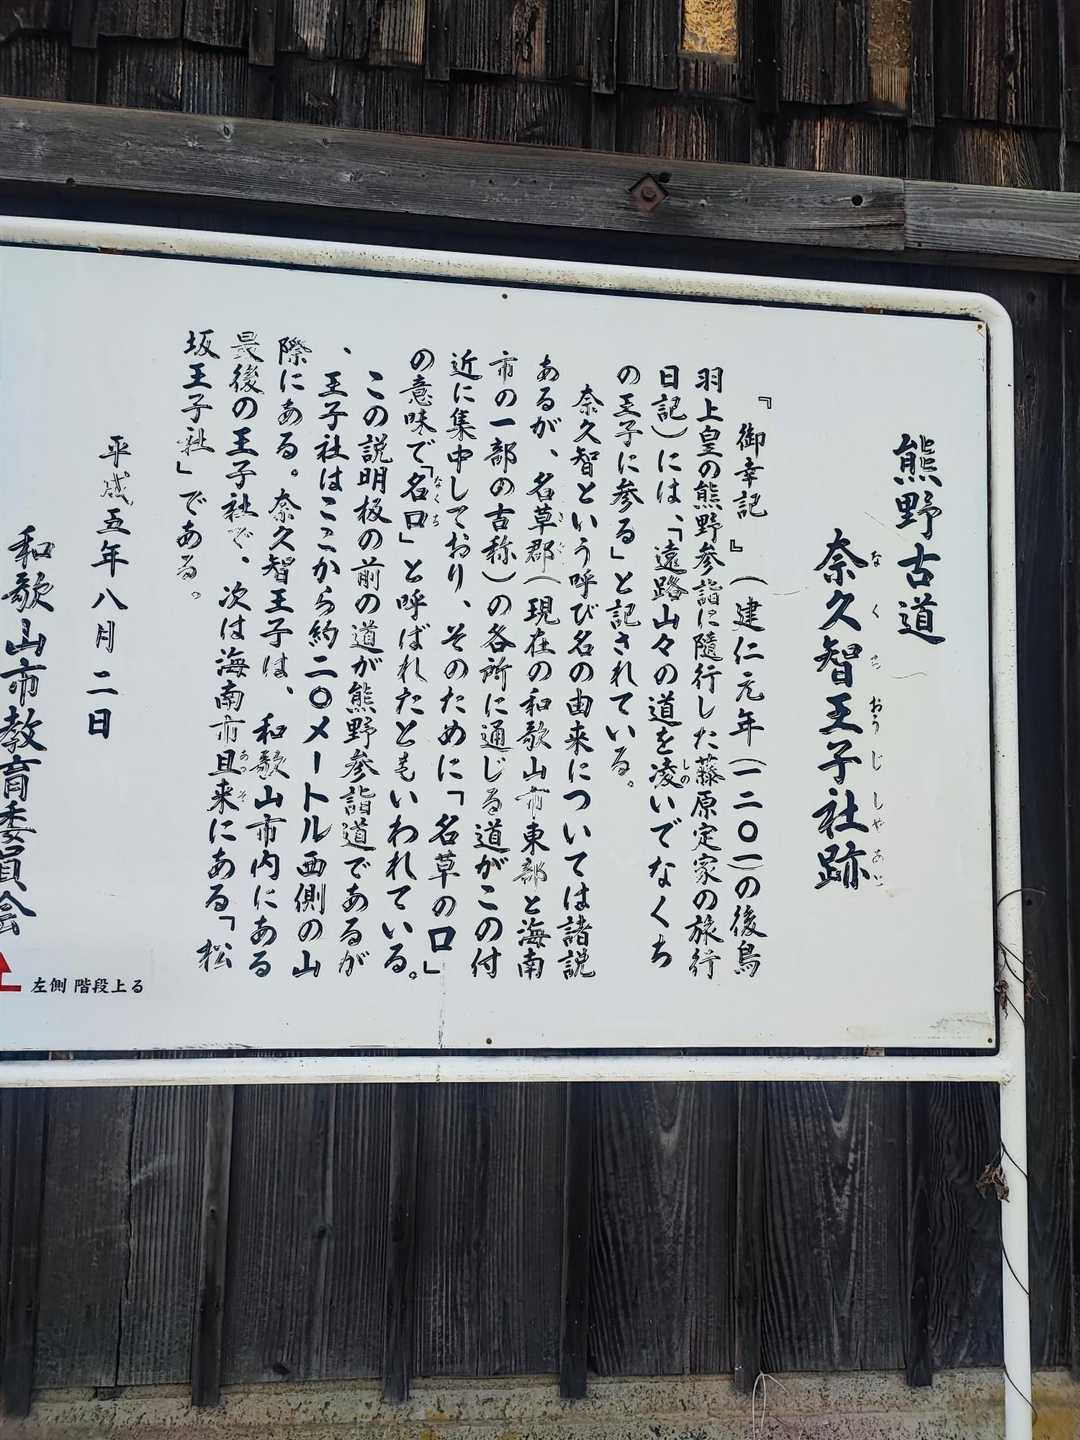 熊野古道
奈久智王子社跡
なくちおうじしゃあと
『御幸記』(建仁元年(一二〇一)の後鳥
羽上皇の熊野参詣に随行した藤原定家の旅行
日記)には、「遠路山々の道を凌いでなくち
しの
の王子に参る」と記されている。
奈久智という呼び名の由来については諸説
あるが、名草郡(現在の和歌山市東部と海南
市の一部の古称)の各所に通じる道がこの付
近に集中しており、そのために「名草の口」
の意味で「名口」と呼ばれたともいわれている。
なくち
この説明板の前の道が熊野参詣道であるが
、王子社はここから約二〇メートル西側の山
際にある。奈久智王子は、和歌山市内にある
最後の王子社で、次は海南市且来にある「松
あっそ
坂王子社」である。
平成五年八月二日
和歌山市教育委員会
左側 階段上る